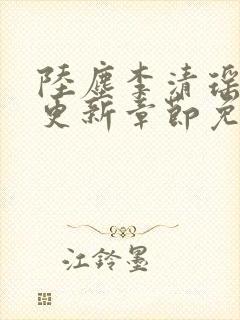 陸塵李清瑶
更新章節免
江鈴墨